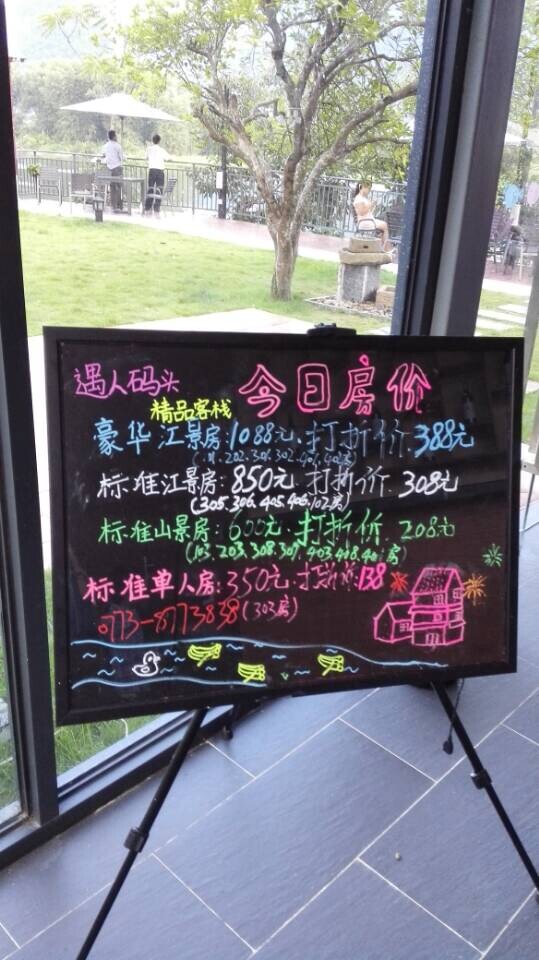 遇人码头
精品客栈
今日房价
豪华江景房:1088元.打折价 388元
标准江景房:850元.打折价 308元
(305.306.405.406.102房)
标准山景房:600元.打折价 208元
(103.203.308.307.403.408.401房)
标准单人房:350元.打折价138
0773-8773838(303房)